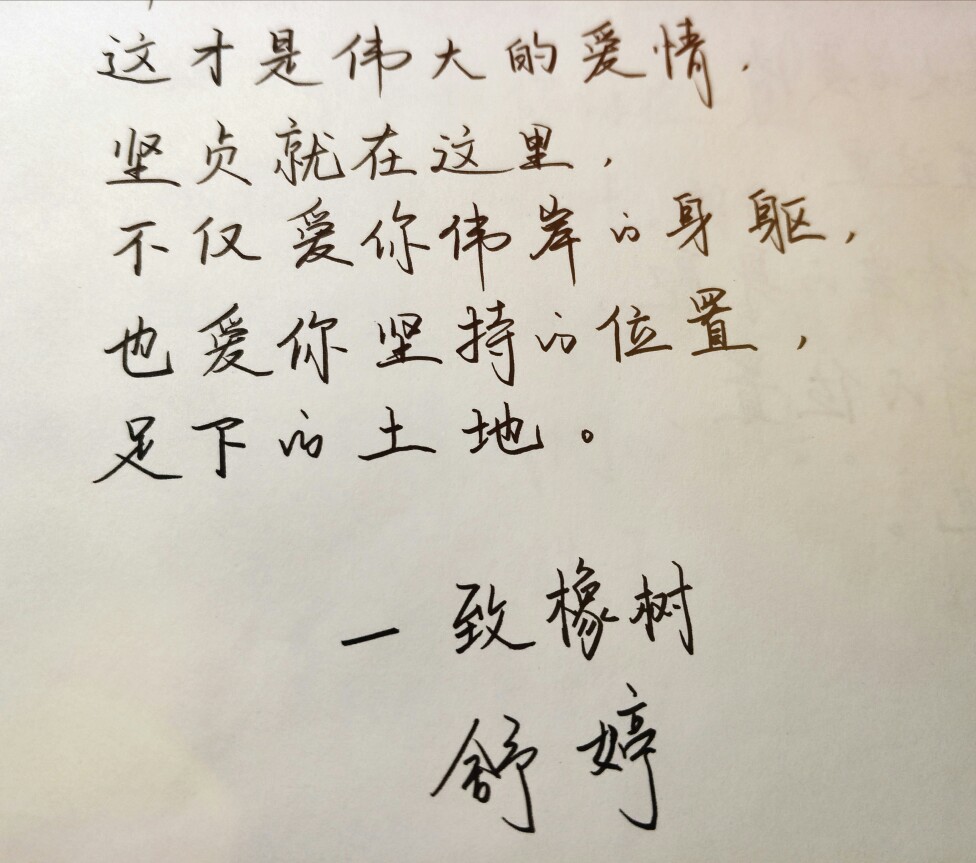 这才是伟大的爱情，
坚贞就在这里，
不仅爱你伟岸的身躯，
也爱你坚持的位置，
足下的土地。
一致橡树
舒婷